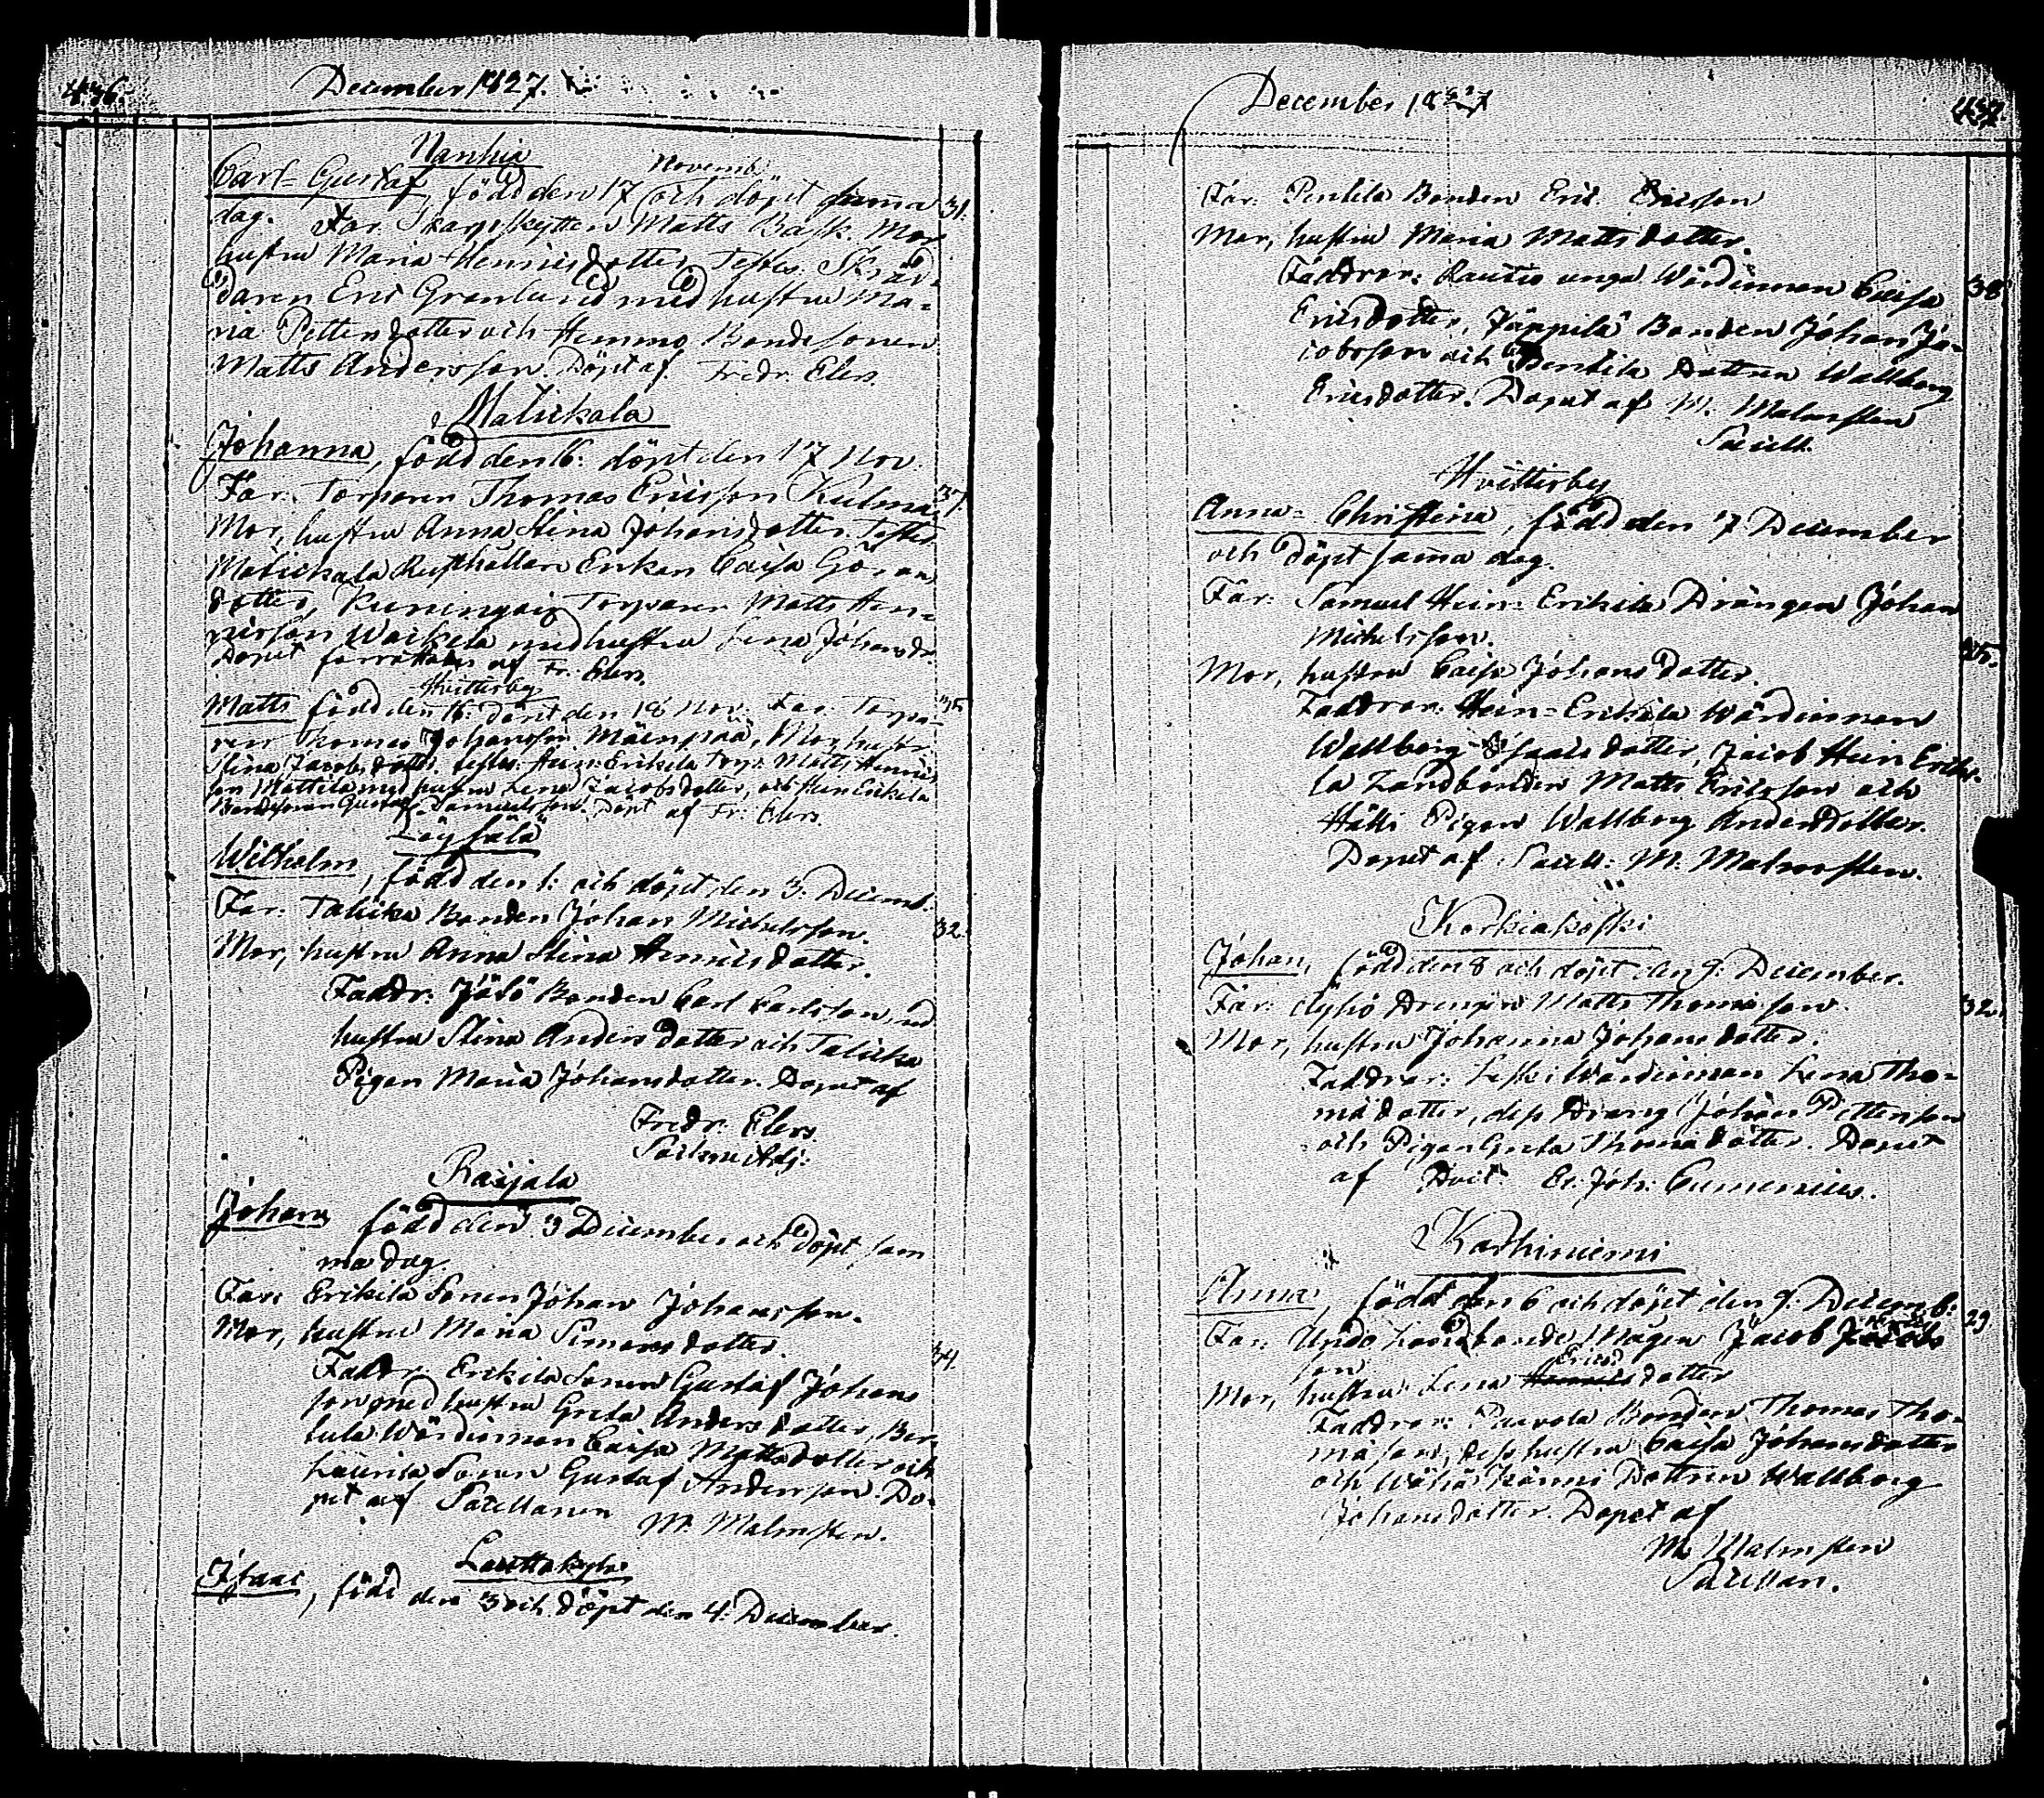 436.
December 1827.
Nanhia
Novemb.
Carl-Gustaf, född den 17 och döpt samma 31.
dag. Far: Skarpskytten Matts Bask. Mor
hustru Maria Henricsdotter, Testes: Skräd-
daren Eric Grönlund med hustru Ma-
ria Pettersdotter och Hemmo Bondesonen
Matts Andersson. Döpt af Fredr. Elers.
Matickala
Johanna, född den 16: döpt den 17 Nov.
Far: Torparen Thomas Ericsson Kulma, 37.
Mor, hustru Anna Stina Johansdotter. Testes
Matickala Rusthållare Enkan Caisa Göran
dotter, Kuningais Torparen Matts Hen-
ricsson Waickela med hustru Lena Johansdr.
Dopet förrättades af Fr. Elers.
Hvitterby
Matts född den 16: döpt den 18 Nov. Far: Torpa-
ren Thomas Johansson Mäenpää, Mor, hustr.
Stina Jacobsdotter. Testes: Hein-Erikila Torp. Matts Henrics
son Mattila med hustru Lena Jacobsdotter, och Hein Erikila
Bondesonen Gustaf Samuelsson. Döpt af Fr: Elers.
Löysälä
Wilhelm, född den 1: och döpt den 3: Decemb.
Far: Talicka Bonden Johan Michelsson. 32.
Mor, hustru Anna Stina Henricsdotter.
Faddr: Jölö Bonden Carl Carlsson, md
hustru Stina Andersdotter och Talicka
Pigan Maria Johansdotter. Döpet af
Fredr: Elers.
Sockne Adj:
Raijala
Johan född den 3 December och döpt sam
ma dag.
Far: Erikila Sonen Johan Johansson.
Mor, hustru Maria Simonsdotter. 34.
Faddr: Erikila Sonen Gustaf Johans
son med hustru Greta Andersdotter, Ber-
tula Wärdinnan Caisa Mattsdotter och
Laurila Sonen Gustaf Andersson. Dö-
pet af Sacellanen M. Malmsten.
Lauttakylä
Isaac, född den 3 och döpt den 4: December.
December 1827
437.
Far: Pentila Bonden Eric Ericsson
Mor, hustru Maria Mattsdotter.
Faddrar: Rautio unga Wärdinnan Caisa 38
Ericsdotter, Jäppilä Bonden Johan Ja-
cobsson och Pentila Dottren Wallborg
Ericsdotter. Döpet af M. Malmsten
Sacell.
Hvitterby
Anna-Christina, född den 7 December
och döpt samma dag.
Far: Samuel Hein-Erikila Drängen Johan
Michelsson.
Mor, hustru Caisa Johansdotter.
Faddrar: Hein-Erikila Wärdinnan
Wallborg Isaacsdotter, Jacob Hein Eriki-
la Landbonden Matts Ericsson och
Hätti Pigan Wallborg Andersdotter.
Döpet af Sacell: M. Malmsten.
Korkiakoski
Johan, född den 8 och döpt den 9: December.
Far: Äyhö Drengen Matts Thomasson. 32.
Mor, hustru Johanna Johansdotter.
Faddrar: Wärdinnan Lena Tho-
mædotter, dess Dräng Johan Pettersson
och Pigan Greta Thomædotter. Döpet
af Er: Joh: Cumenius.
Karhiniemi
Anna, född den 6 och döpt den 9: Decemb: 29
Far: Undo Landbonde Mågen Jacob
son
Erics
Mor, hustru Lena dotter
Faddrar: Paavola Bonden Thomas Tho-
mæson, dess hustru Caisa Johansdotter
och Wähä Känni Dottren Wallborg
Johansdotter. Döpet af
M. Malmsten
Sacellan.